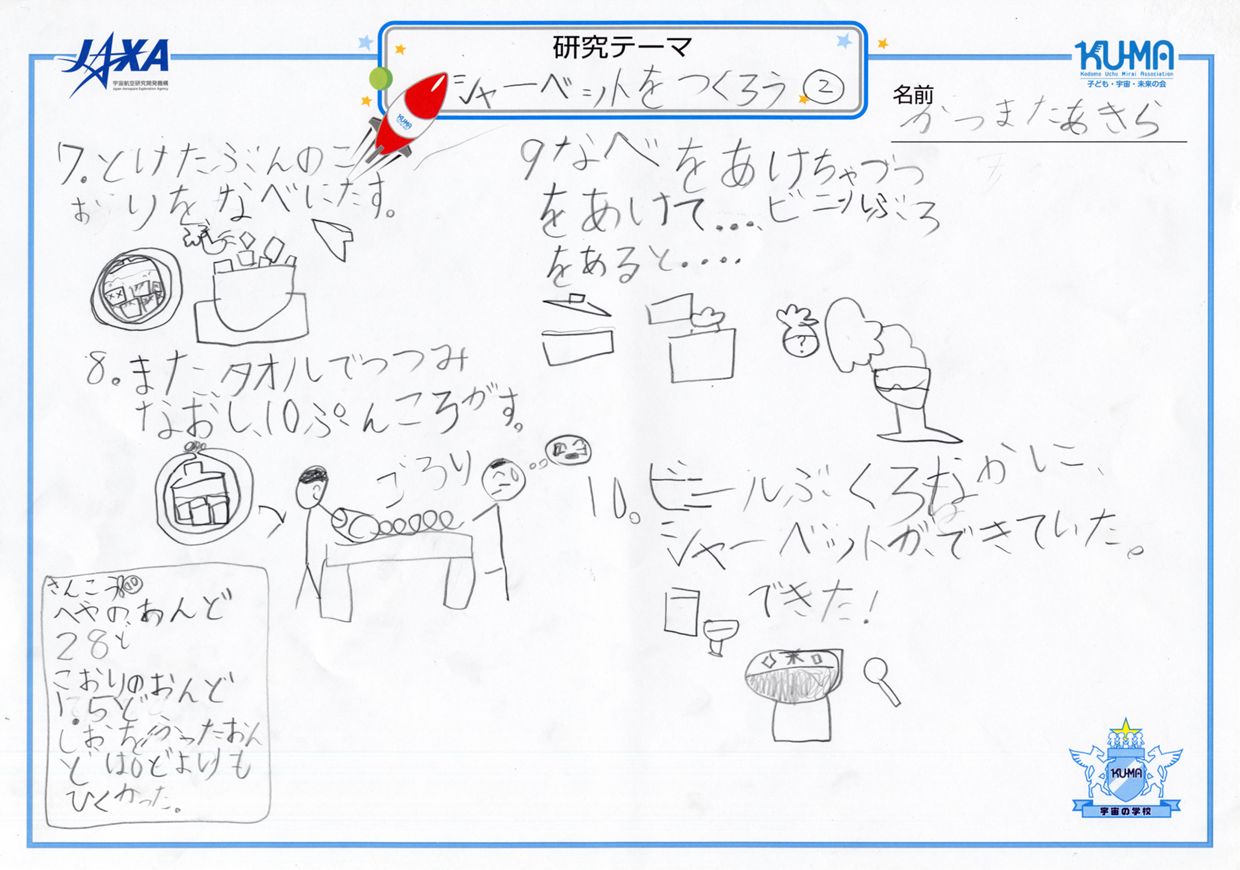 JAXA
宇宙航空研究開発機構
Japan Aerospace Exploration Agency
研究テーマ
シャーベットをつくろう②
KUMA
Kodomo Uchu Mirai Association
子ども・宇宙・未来の会
名前
かつまたあきら
KUMA
7.とけたぶんのこ
おりをなべにたす。
8。また、タオルでつつみ
なおし、10ぷんころがす。
ごろり
さんこう
へやの、おんど
28ど
こおりのおんど
1.5ど、
しおをつかったおん
どは0どよりも
ひくかった。
9なべをあけちゃづつ
をあけて…、ビニルぶころ
をあると・・・・・
?
10。ビニールぶくろなかに、
シャーベットが、できていた。
できた!
KUMA
宇宙の学校